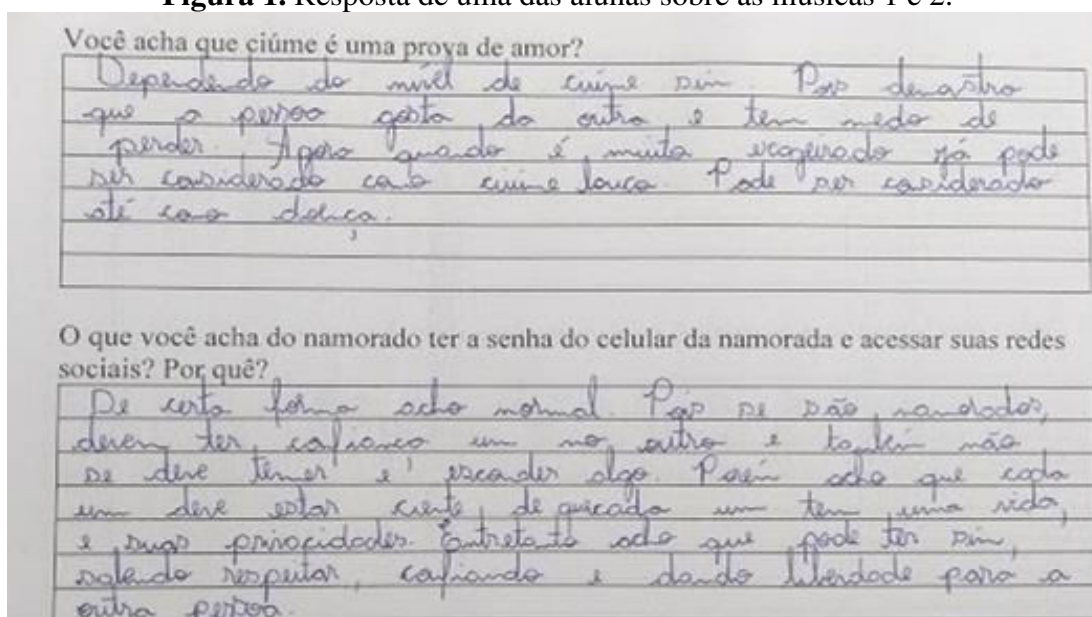 Figura 1. Resposta de uma das alunas sobre as músicas 1 e 2.
Você acha que ciúme é uma prova de amor?
Dependendo do nível de ciúme sim. Pois demostra
que a pessoa gosta da outra e tem medo de
perder. Agora quando é muito já pode
ser considerado como ciúme louco. Pode ser considerado
até como doença.
O que você acha do namorado ter a senha do celular da namorada e acessar suas redes
sociais? Por quê?
De certa forma acho normal. Pois se são namorados,
devem ter confiança um no outro e também não
se deve temer e esconder algo. Porém acho que cada
um deve estar ciente de que cada um tem uma vida,
e suas privacidades. Entretanto acho que pode ter sim,
sabendo respeitar, confiando e dando liberdade para a
outra pessoa.